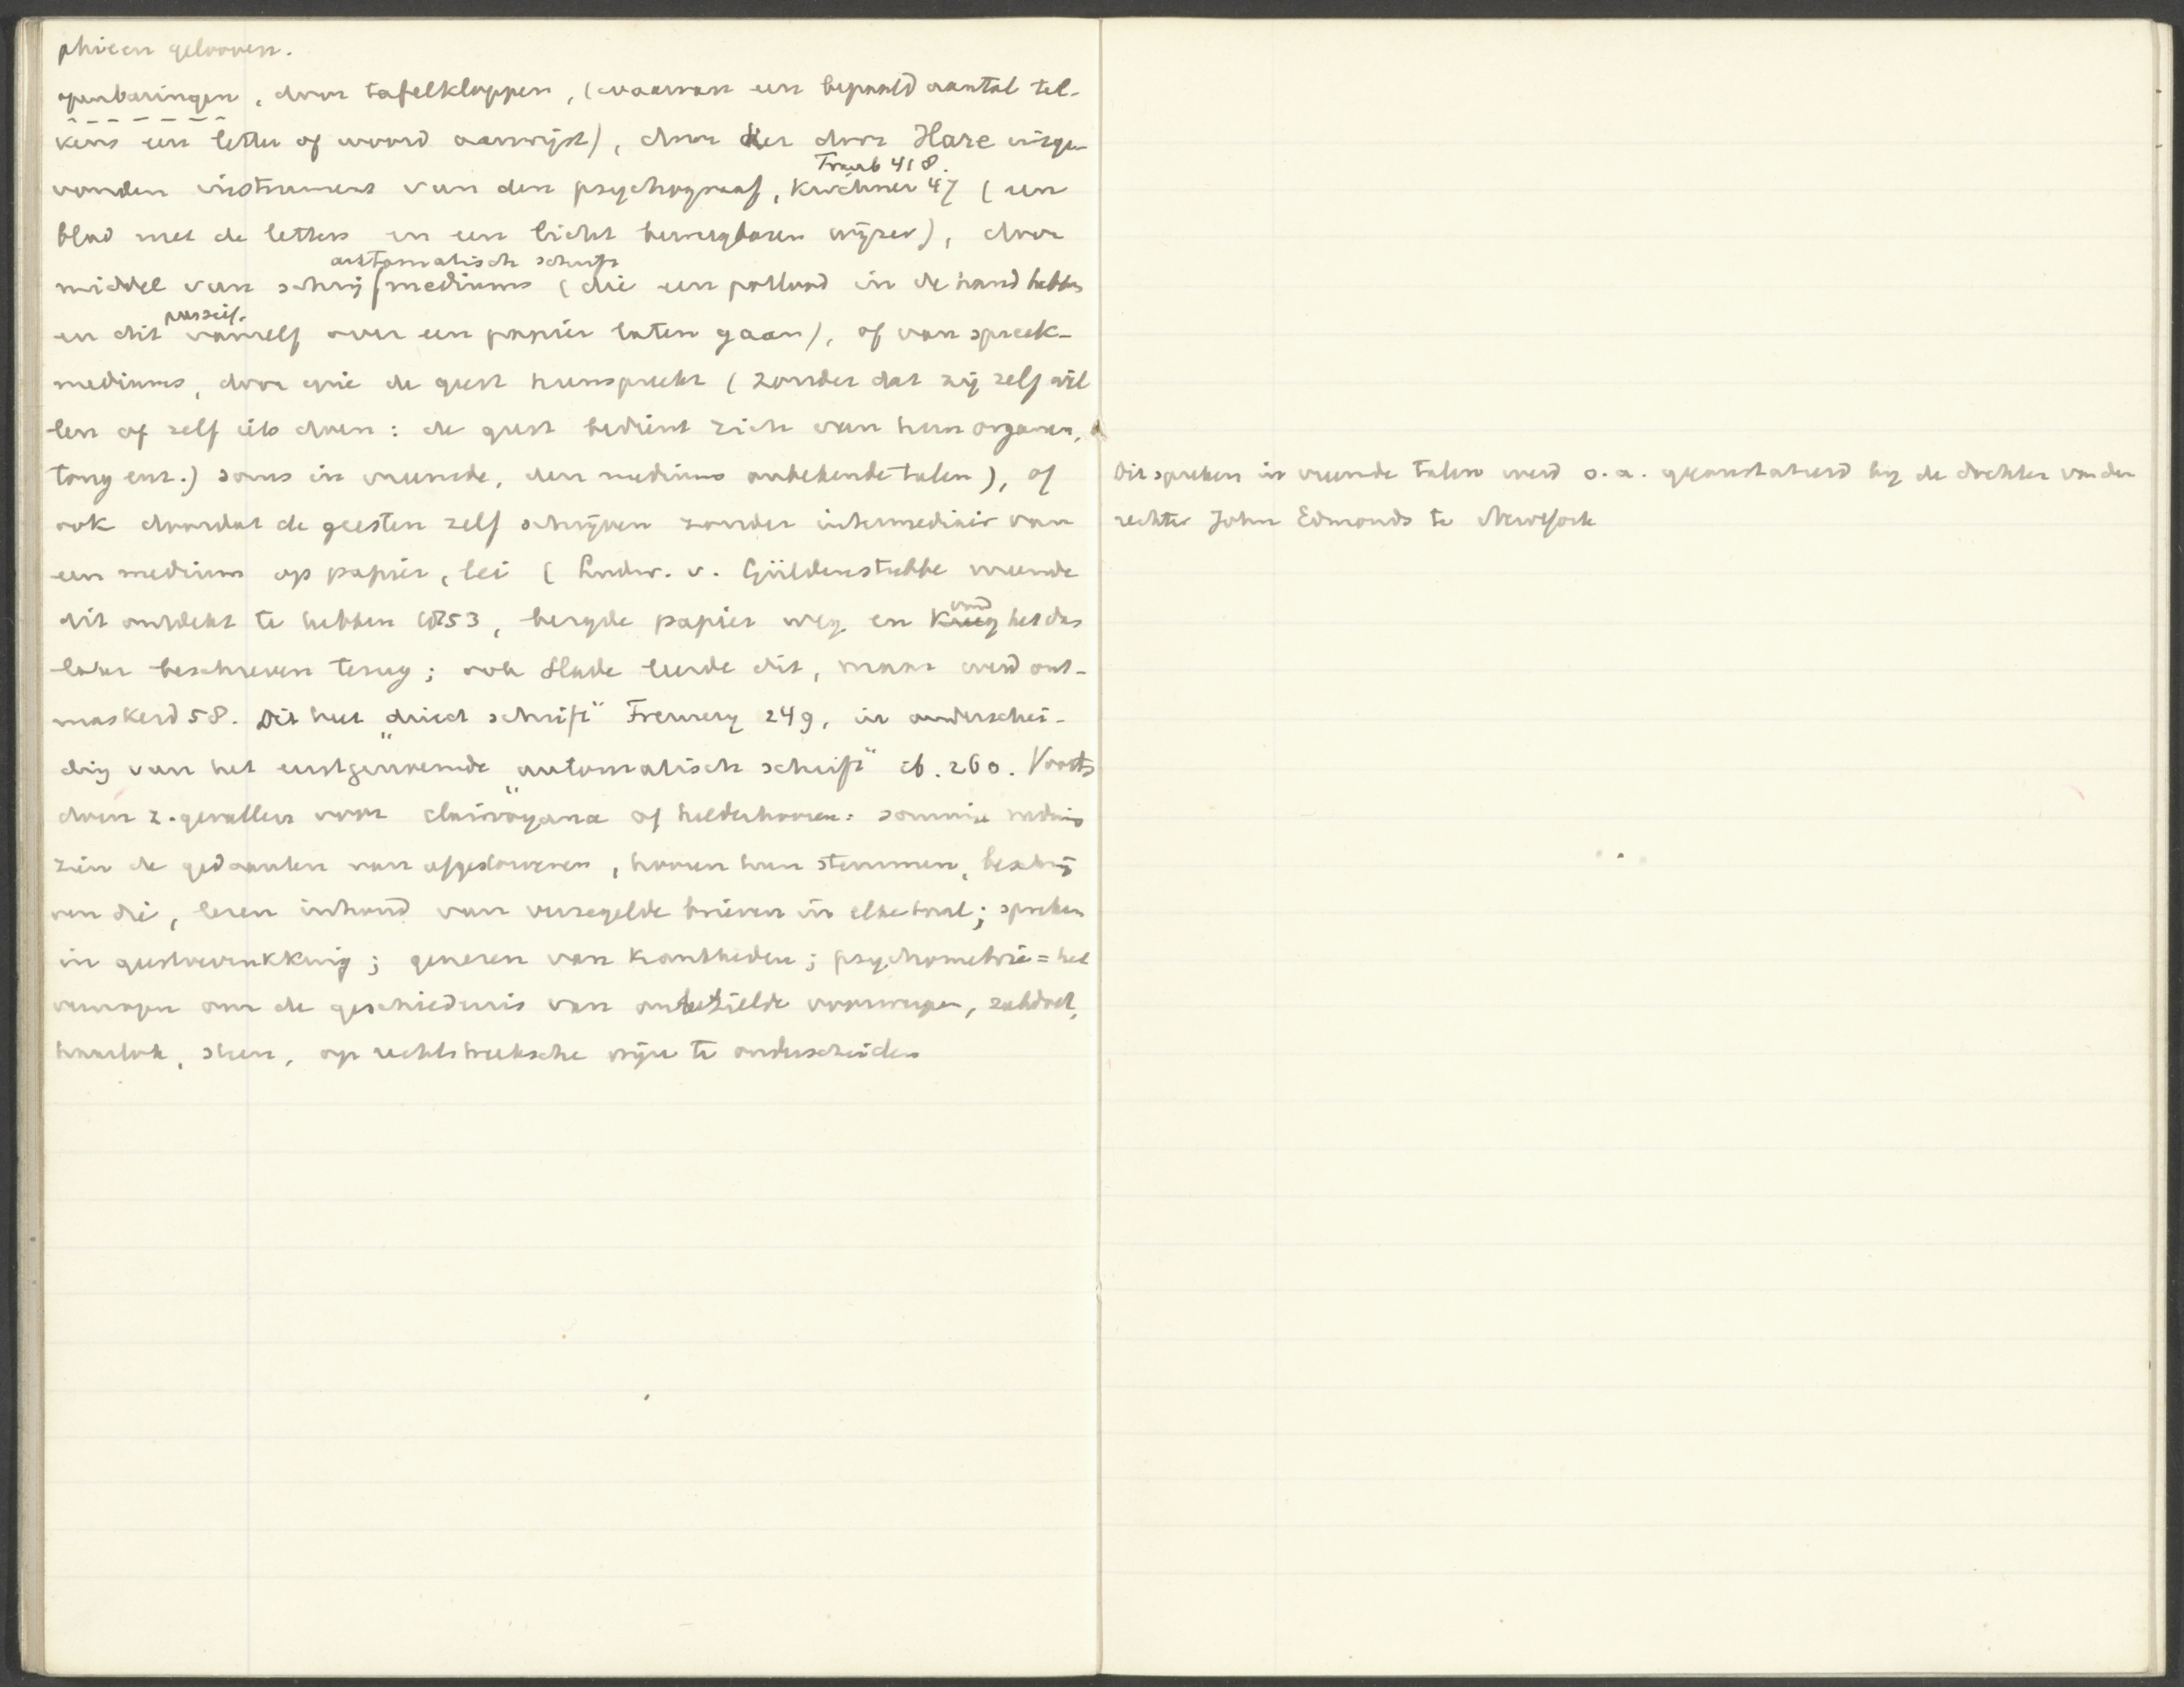 phieen gelooven.
openbaringen, door tafelkloppen, (waarvan een bepaald aantal tel-
kens een letter of woord aanwijst), door het door Hare uitge-
Traub 418.
vonden instrument van den psychograaf, Kirchner 47 (een
blad met de letters en een licht beweegbaren wijzer), door
automatisch schrift
middel van schrijfmediums (die een potlood in de hand hebben
passief.
en dit vanzelf over een papier laten gaan), of van spreek-
mediums, door wie de geest heenspreekt (zonder dat zij zelf wil
len of zelf iets doen: de geest bedient zich van hun organen,
tong enz.) soms in vreemde, den mediums onbekende talen), of
ook doordat de geesten zelf schrijven zonder intermediair van
een medium op papier, lei (Ludw. v. Güldenstubbe meende
dit ontdekt te hebben 1853, bergde papier weg en kreeg het dan
vond
later beschreven terug; ook Slade leerde dit, maar werd ont-
maskerd 58. Dit heet „direct schrift" Fremery 249, in onderschei-
ding van het eerstgenoemde „automatisch schrift" ib. 260. Voorts
doen z. gevallen voor clairvoyance of helderhooren: sommige mediums
zien de gedaanten van afgestorvenen, hooren hun stemmen, beschrij
ven die, lezen inhoud van verzegelde brieven in elke taal; spreken
in geestverrukking; genezen van krankheden; psychometrie = het
vermogen om de geschiedenis van onbezielde voorwerpen, zakdoek,
haarlok, steen, op rechtstreeksche wijze te onderscheiden
Dit spreken in vreemde talen werd o.a. geconstateerd bij de dochter van den
rechter John Edmonds te NewYork